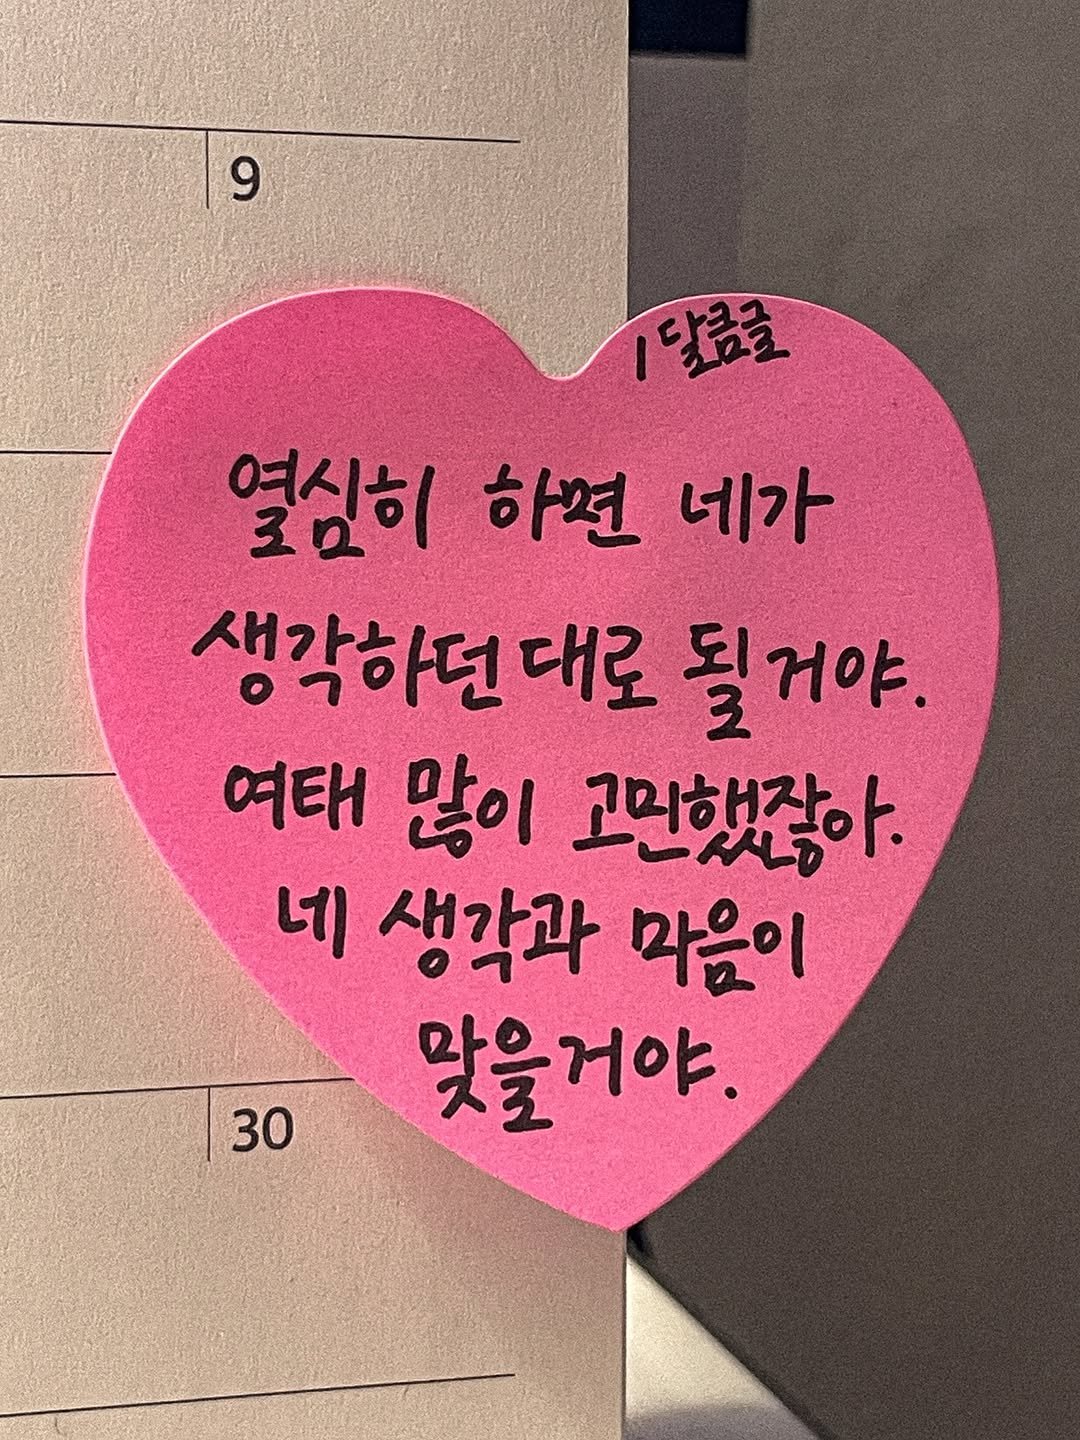 9
1달큼글
열심히 하면 네가
생각하던대로 될거야.
여태 많이 고민했잖아.
네 생각과 마음이
맞을거야.
30